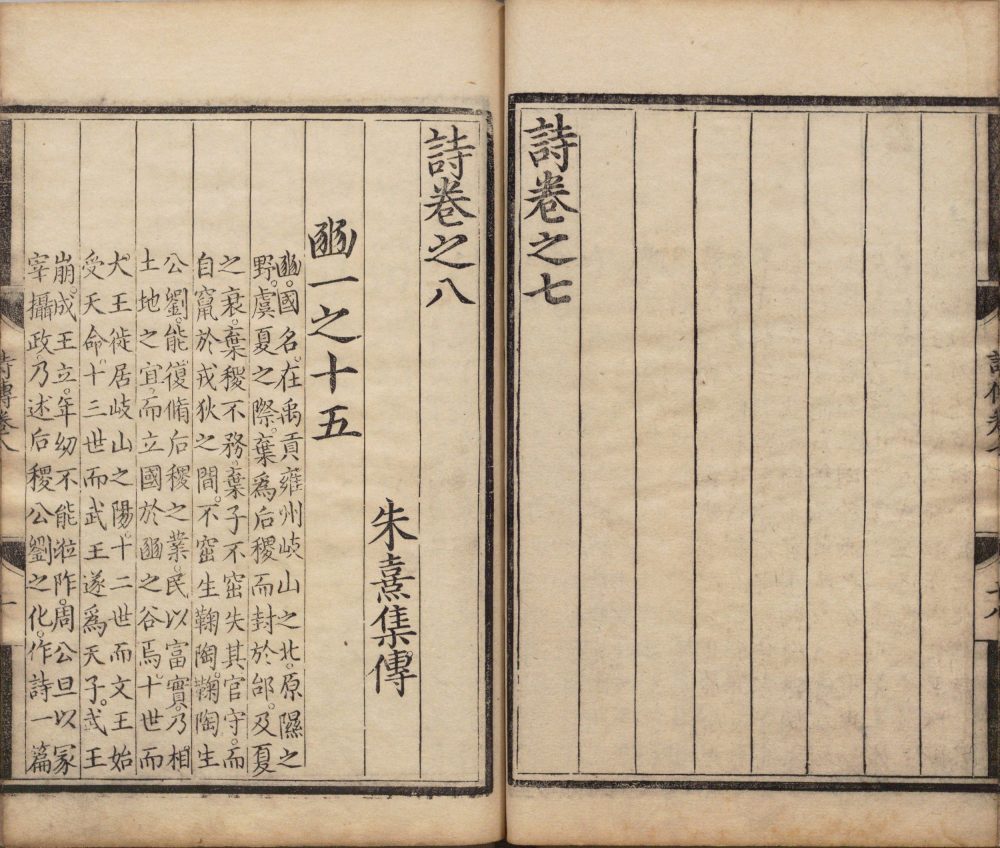 詩卷之七
詩卷之八
朱熹集傳
豳一之十五
豳。國名。在禹貢雍州岐山之北。原隰之
野。虞夏之際。棄爲后稷而封於邰。及夏
之衰。棄稷不務。棄子不窋失其官守。而
自竄於戎狄之間。不窋生鞠陶。鞠陶生
公劉。能復脩后稷之業。民以富實。乃相
土地之宜。而立國於豳之谷焉。十世而
大王徙居岐山之陽。十二世而文王始
受天命。十三世而武王遂爲天子。武王
崩。成王立。年幼不能涖阼。周公旦以冢
宰攝政。乃述后稷公劉之化。作詩一篇
詩傳卷八
一